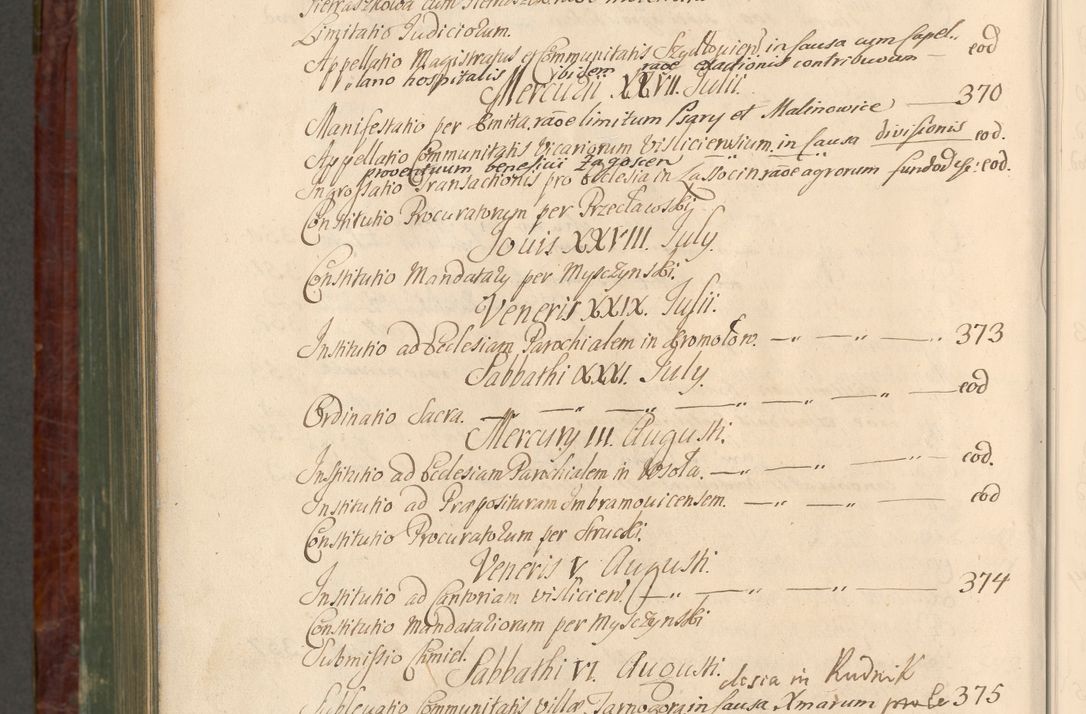 Limitatio Judiciorum.
Appellatio Magistratus et Communitatis Szydlovien: in Causa cum Capel- eod
lano hospitalis ibidem raoe exactionis contribuoum
Mercurii XXVII. Julii.
Manifestatio per Kmita, raoe limitum Psary et Malinowice — 370
Appellatio Communitatis Vicariorum Visliciensium, in Causa divisionis eod.
proventuum beneficii Zagoscen
Ingrossatio Transactionis pro Ecclesia in Lassocin, raoe agrorum fundod esse: eod.
Constitutio Procuratorum per Przecławski.
Jovis XXVIII. July.
Constitutio Mandatary per Myszczynski.
Veneris XXIX. Julii.
Institutio ad Ecclesiam Parochialem in Gromotow. — „ — „ — „ 373
Sabbathi XXXI. July.
Ordinatio Sacra. — — „ — „ — „ — „ — eod
Mercury III. Augusti.
Institutio ad Ecclesiam Parochialem in Wsola. — „ — „ — eod.
Institutio ad Præposituram Imbramovicensem. — „ — „ — eod
Constitutio Procuratorum per Strucki.
Veneris V. Augusti.
Institutio ad Cantoriam Vislicien: — „ — „ — „ — 374
Constitutio Mandatariorum per Myszczynski
Submissio Chmiel.
Sabbathi VI. Augusti.
clesia in Rudnik
Sublevatio Communitatis Villæ Tarnogora in Causa Xmarum pro Ec 375